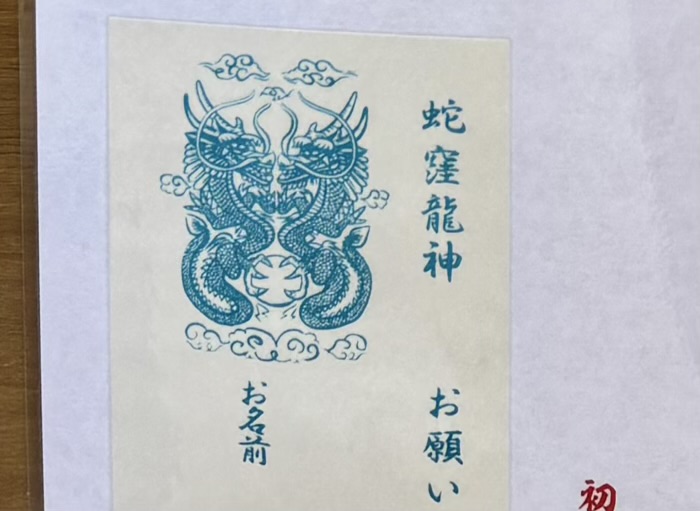 初
蛇窪龍神
お願い
お名前